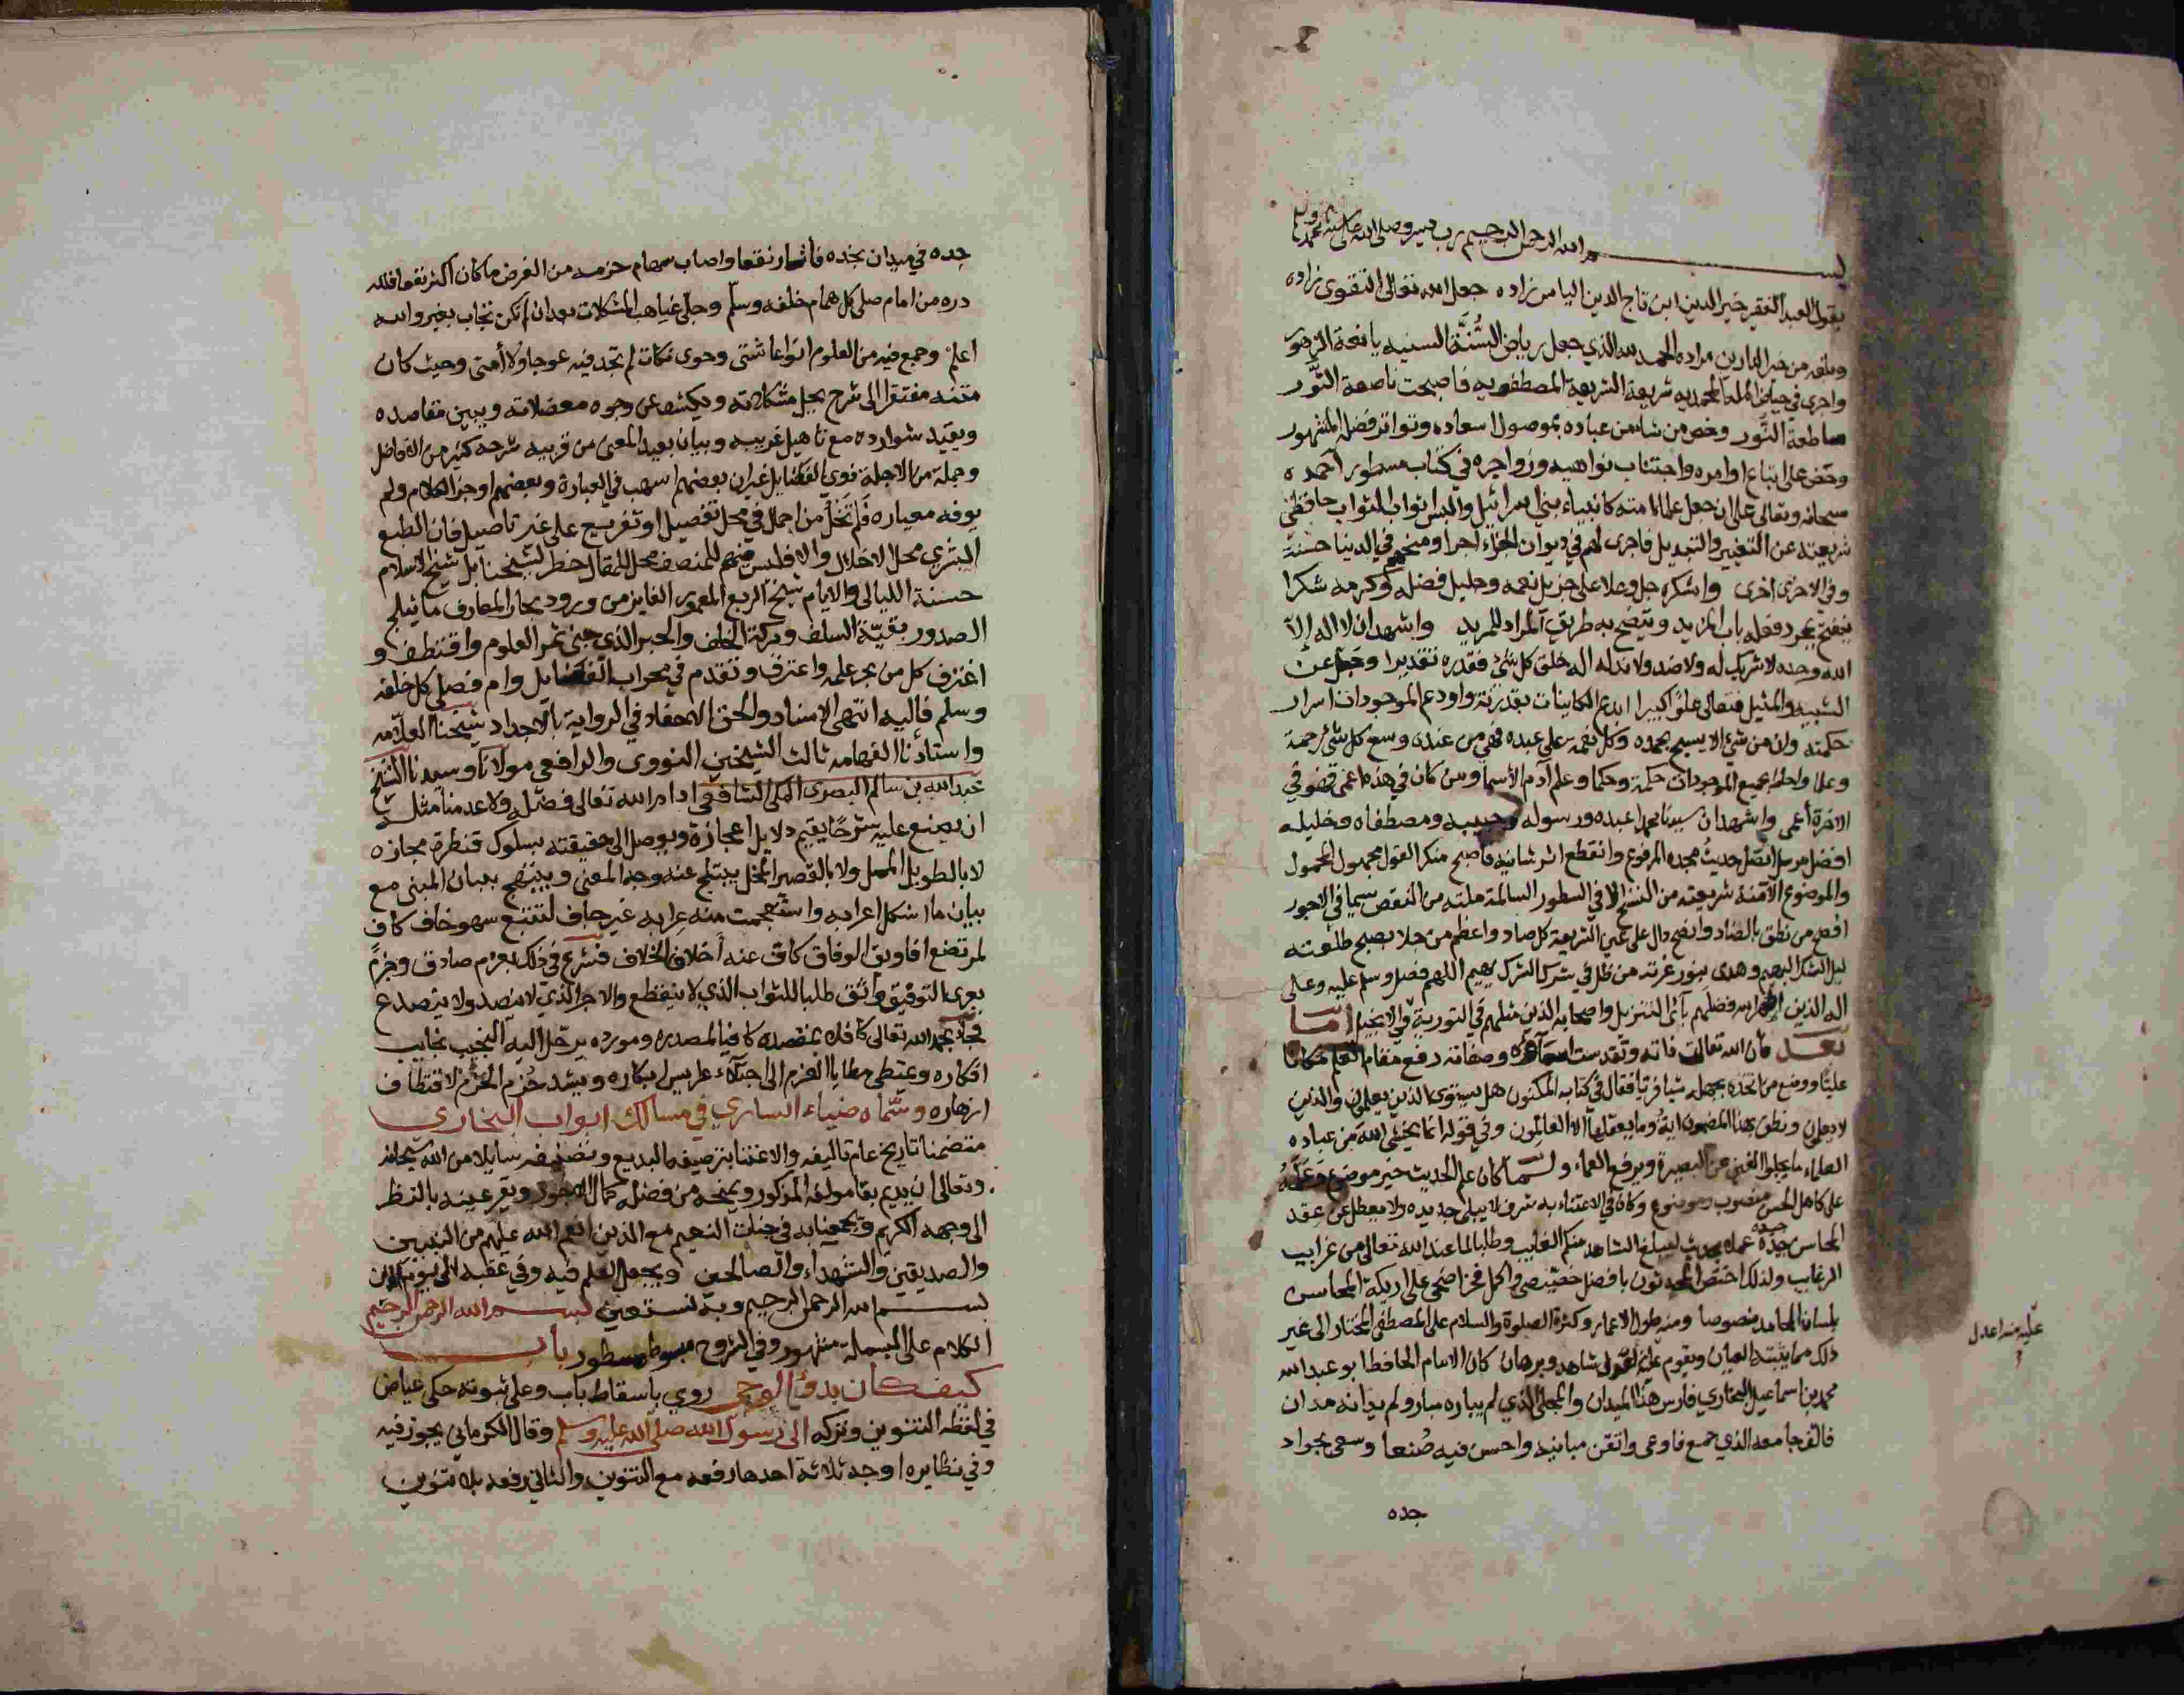 بسم الله الرحمن الرحيم رب يسر وصلى الله على سيدنا محمد وسلم
يقول العبد الفقير خير الدين ابن تاج الدين الياس زاده جعل الله تعالى التقوى زاده
وبلغه من خير الدارين مراده الحمد لله الذي جعل رياض السُّنَّة السنيه يانعة الزهور
واجرى في حياض الملة المحمديه شريعة الشريعة المصطفويه فاصبحت ناصعة النَّور
ساطعة النُّور وخص من شاء من عباده بموصول اسعاده وتواتر فضله المشهور
وحض على اتباع اوامره واجتناب نواهيه وزواجره في كتاب مسطور احمده
سبحانه وتعالى على ان جعل علماء امته كانبياء بني اسرائيل والبس اثواب الثواب حافظي
شريعته عن التغيير والتبديل فاجرى لهم في ديوان الجزاء اجرا ومنحهم في الدنيا حسنة
وفي الاخرى اخرى واشكره جل وعلا على جزيل نعمه وجليل فضله وكرمه شكرا
ينفتح بمجرد فعله باب المزيد ويتضح به طريق المراد للمريد واشهد ان لا اله إلاّ
الله وحده لا شريك له ولا ضد ولا ند له اله خلق كل شئ فقدره تقديرا وجل عن
الشبيه والمثيل فتعالى علوًّا كبيرا ابدع الكاينات بقدرته واودع الموجودات اسرار
حكمته وان من شئ الا يسبح بحمده وكل نعمة على عبده فهي من عنده وسع كل شئ رحمة
وعلما واحاط بجميع الموجودات حكمة وحكما وعلم آدم الأسما ومن كان في هذه اعمى فهو في
الاخرة أعمى واشهد ان سيدنا محمدا عبده ورسوله وحبيبه ومصطفاه وخليله
افضل مرسل اتصل حديث مجده المرفوع وانقطع اثر شانيه فاصبح منكر القول مجهول المحمول
والموضوع الآمنة شريعته من النسخ الا في السطور السالمة ملته من النقص سيما في الاجور
افصح من نطق بالضاد وانصح دال على عين الشريعة كل صاد واعظم من جلا بصبح طلعته
ليل الشك البهيم وهدى بنور غرته من ظل في شرك الشرك يهيم اللهم فصل وسلم عليه وعلى
اله الذين اظهر الله فضلهم بآي التنزيل واصحابه الذين مثلهم في التورية وفي الانجيل أما
بعد فان الله تعالت ذاته وتقدست اسماؤه وصفاته رفع مقام العلم مكانا
عليًّا ووضع من اتخذه بجهله شيا فريا فقال في كتابه المكنون هل يستوى الذين يعلمون والذين
لا يعلمون ونطق بهذا المضمون اية وما يعقلها الا العالمون وفي قوله انما يخشى الله من عباده
العلماء ما يجلوا الغين عن البصيرة ويرفع العماء ولما كان علم الحديث خير موضوع
على كاهل الحسن منصوب ومرفوع وكان في الاعتناء به شرف لا يبلى جديده ولا يعطل عن عقد
المحاسن جيده عملا بحديث ليبلغ الشاهد منكم الغايب وطلبا لما عند الله تعالى من غرايب
الرغايب ولذلك اختص المحدثون بافضل خصيصى واكمل فخر اضحى على اريكة المحاسن
بلسان المحامد منصوصا ومنه طول الاعمار وكثرة الصلوة والسلام على المصطفى المختار الى غير
ذلك مما يثبته العيان ويقوم عليه شاهد وبرهان كان الامام الحافظ ابو عبد الله
محمد بن اسماعيل البخاري فارس هذا الميدان والمجلي الذي لم يباره مبار ولم يدانه مدان
فالف جامعه الذي جمع فاوعى واتقن مبانيه واحسن فيه صُنعا وسعى بجواد
جده
عليه منه اعدل
جده في ميدان بخده فأثار نقعا واصاب سهام حزمه من الغرض ما كان اكثر نفعا فلله
دره من امام صلى كل همام خلفه وسلّم وجلّى غياهب المشكلات بعد ان لم تكن تنجاب بغيره والله
اعلم وجمع فيه من العلوم انواعا شتى وحوى نكات لم تجد فيه عوجا ولا أمتى وحيث كان
متنه مفتقرا الى شرح يحل مشكلاته ويكشف عن وجوه معضلاته ويبين مقاصده
ويقيد شوارده مع تاهيل غريبه وبيان بعيد المعنى من قريبه شرحه كثير من الافاضل
وجملة من الاجلة ذوي الفضايل غير ان بعضهم اسهب في العبارة وبعضهم اوجز الكلام ولم
يوفه معياره فلم تخل من اجمال في محل تفصيل او تفريع على غير تاصيل فان الطبع
البشري محل الاخلال والا فليس فيهم للمنصف محل للمقال خطر لشيخنا بل شيخ الاسلام
حسنة الليالي والايام شيخ الربع المعمور الفايز من ورود بحار المعارف ما يثلج
الصدور بقيّة السلف وبركة الخلف والحبر الذي جنى ثمر العلوم واقتطف و
اغترف كل من بحر علمه واعترف وتقدم في محراب الفضايل وام فصلى كل خلفه
وسلم فاليه انتهى الاسناد والحق الاحفاد في الرواية بالاجداد شيخنا العلامه
واستاذنا الفهامه ثالث الشيخين النووى والرافعي مولانا وسيدنا الشيخ
عبد الله بن سالم البصرى المكي الشافعي ادام الله تعالى فضله ولا عدمنا مثله
ان يضع عليه شرحًا يقيم دلايل اعجازه ويوصل الى حقيقته بسلوك قنطرة مجازه
لا بالطويل الممل ولا بالقصير المخل يبتلج عنه وجه المعنى ويتضح ببيان المبنى مع
بيان ما اشكل اعرابه واستعجمت منه عرابه غير جاف لتتبع سهو خاف كاف
لمرتضع افاويق الوفاق كاف عنه أخلاف الخلاف فشرع في ذلك بعزم صادق وجزم
بعرى التوفيق واثق طلبا للثواب الذي لا ينقطع والاجر الذي لا ينصد ولا يتصدع
فجاء بحمد الله تعالى كافلا بمقصده كافيا لمصدره ومورده يرحل اليه النجيب نجايب
افكاره ويمتطى مطايا العزم الى اجتلاء عرايس ابكاره ويشد حُزم الحزم لاقتطاف
ازهاره وسمّاه ضياء الساري في مسالك ابواب البخاري
متضمنا تاريخ عام تاليفه والاعتنا بترصيفه البديع وتصنيفه سايلا من الله سبحانه
وتعالى ان يديم بقا مولفه المذكور ويمنحه من فضله كمال الاجور ويقر عينه بالنظر
الى وجهه الكريم ويجمعنا به في جنات النعيم مع الذين انعم الله عليهم من النبيين
والصديقين والشهداء والصالحين ويجعل العلم فيه وفي عقبه الى يوم الدين
بسم الله الرحمن الرحيم وبه نستعين بسم الله الرحمن الرحيم
الكلام على البسملة مشهور وفي الشروح مبسوط مسطور باب
كيف كان بدؤ الوحي روي باسقاط باب وعلى ثبوته حكى عياض
في لفظه التنوين وتركه الى رسول الله صلى الله عليه وسلم وقال الكرماني يجوز فيه
وفي نظايره اوجه ثلاثة احدها رفعه مع التنوين والثاني رفعه بلا تنوين